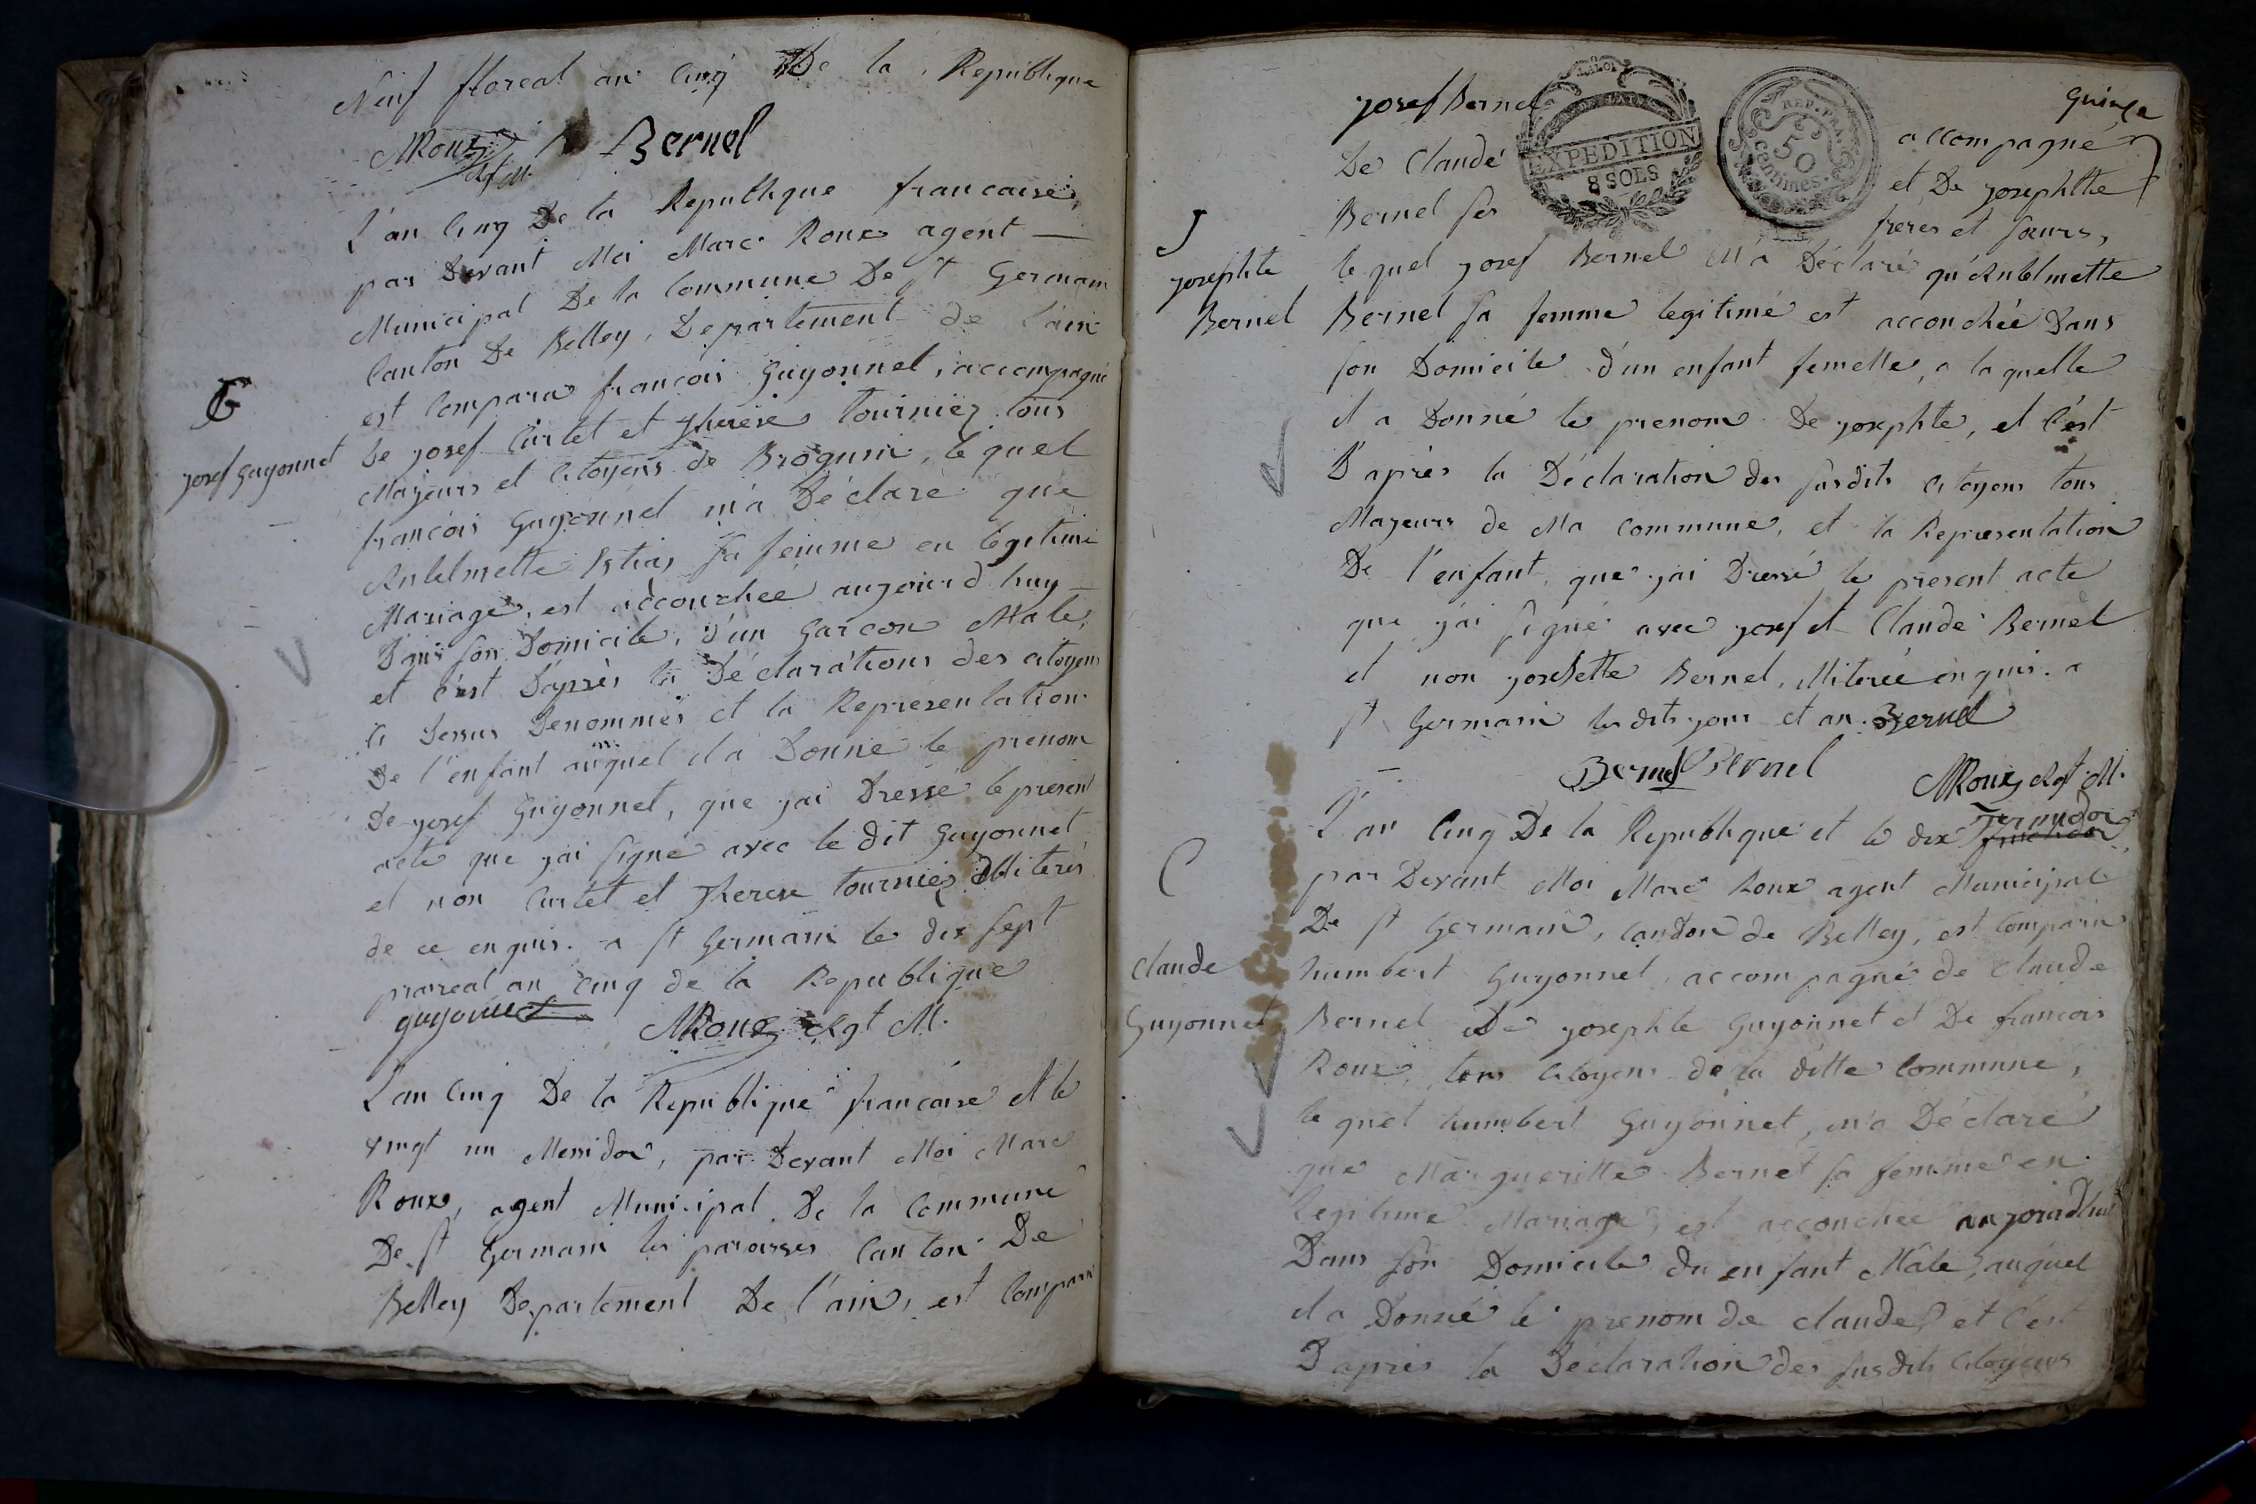 Neuf floreal an cinq De la Republique
MRoux agt M. Bernel
L'an cinq De la Republique francaise,
par Devant Moi Marc Roux agent
Municipal De la Commune De st Germain
Canton De Belley, Departement de l'ain
est Comparu francois Guyonnet, accompagné
G
josef Guyonnet
De josef Curtet et therese tournier tous
Majeurs et Citoyens de Brognin, le quel
francois Guyonnet m'a Déclaré que
Anthelmette sa femme en légitime
Mariage, est accouchee aujourd'huy
Dans son Domicile, d'un Garcon Male,
et c'est D'après la Déclarations des citoyens
ci Dessus Denommés et la Representation
De l'enfant auquel il a Donné le prenom
De josef Guyonnet, que jai Dressé le présent
acte que jai signé avec le dit Guyonnet
et non Curtet et therese tournier illiterés
de ce enquis. a st Germain le dix sept
prareal an cinq de la Republique
guyonnet MRoux Agt M.
L'an cinq De la Republique francaise et le
vingt un Messidor, par Devant Moi Marc
Roux, agent Municipal De la Commune
De st Germain les paroisses Canton De
Belley Departement De l'ain, est Comparu
quinze
josef Bernel accompagné
De Claude et De josephte
Bernel ses frères et sœurs,
EXPEDITION
8 SOLS
REP. FRA.
50
centimes.
J
josephte
Bernel
le quel josef Bernel M'a Déclaré qu'Anthelmette
Bernel sa femme legitime est accouchée Dans
son Domicile d'un enfant femelle, a laquelle
il a Donné le prenom De josephte, et c'est
D'après la Déclaration des susdits citoyens tous
Majeurs de Ma commune, et la Representation
De l'enfant que jai Dressé le present acte
que jai signé avec josef et Claude Bernel
et non josephte Bernel, illiterée enquis. a
st Germain les dits jour et an. Bernel
Bernel Bernel MRoux Agt M.
L'an cinq De la Republique et le dix Termidor
par Devant Moi Marc Roux agent Municipal
De st Germain, Canton de Belley, est Comparu
C
Claude
Guyonnet
humbert Guyonnet, accompagné de Claude
Bernel De josephte Guyonnet et De francois
Roux, tous citoyens de la ditte Commune,
le quel humbert Guyonnet, m'a Déclaré
que Margueritte Bernel sa femme en
legitime Mariage, est accouchée aujourd'hui
Dans son Domicile du enfant Mâle, auquel
il a Donné le prenom de claude, et c'est
D'apres la Déclaration des susdits citoyens